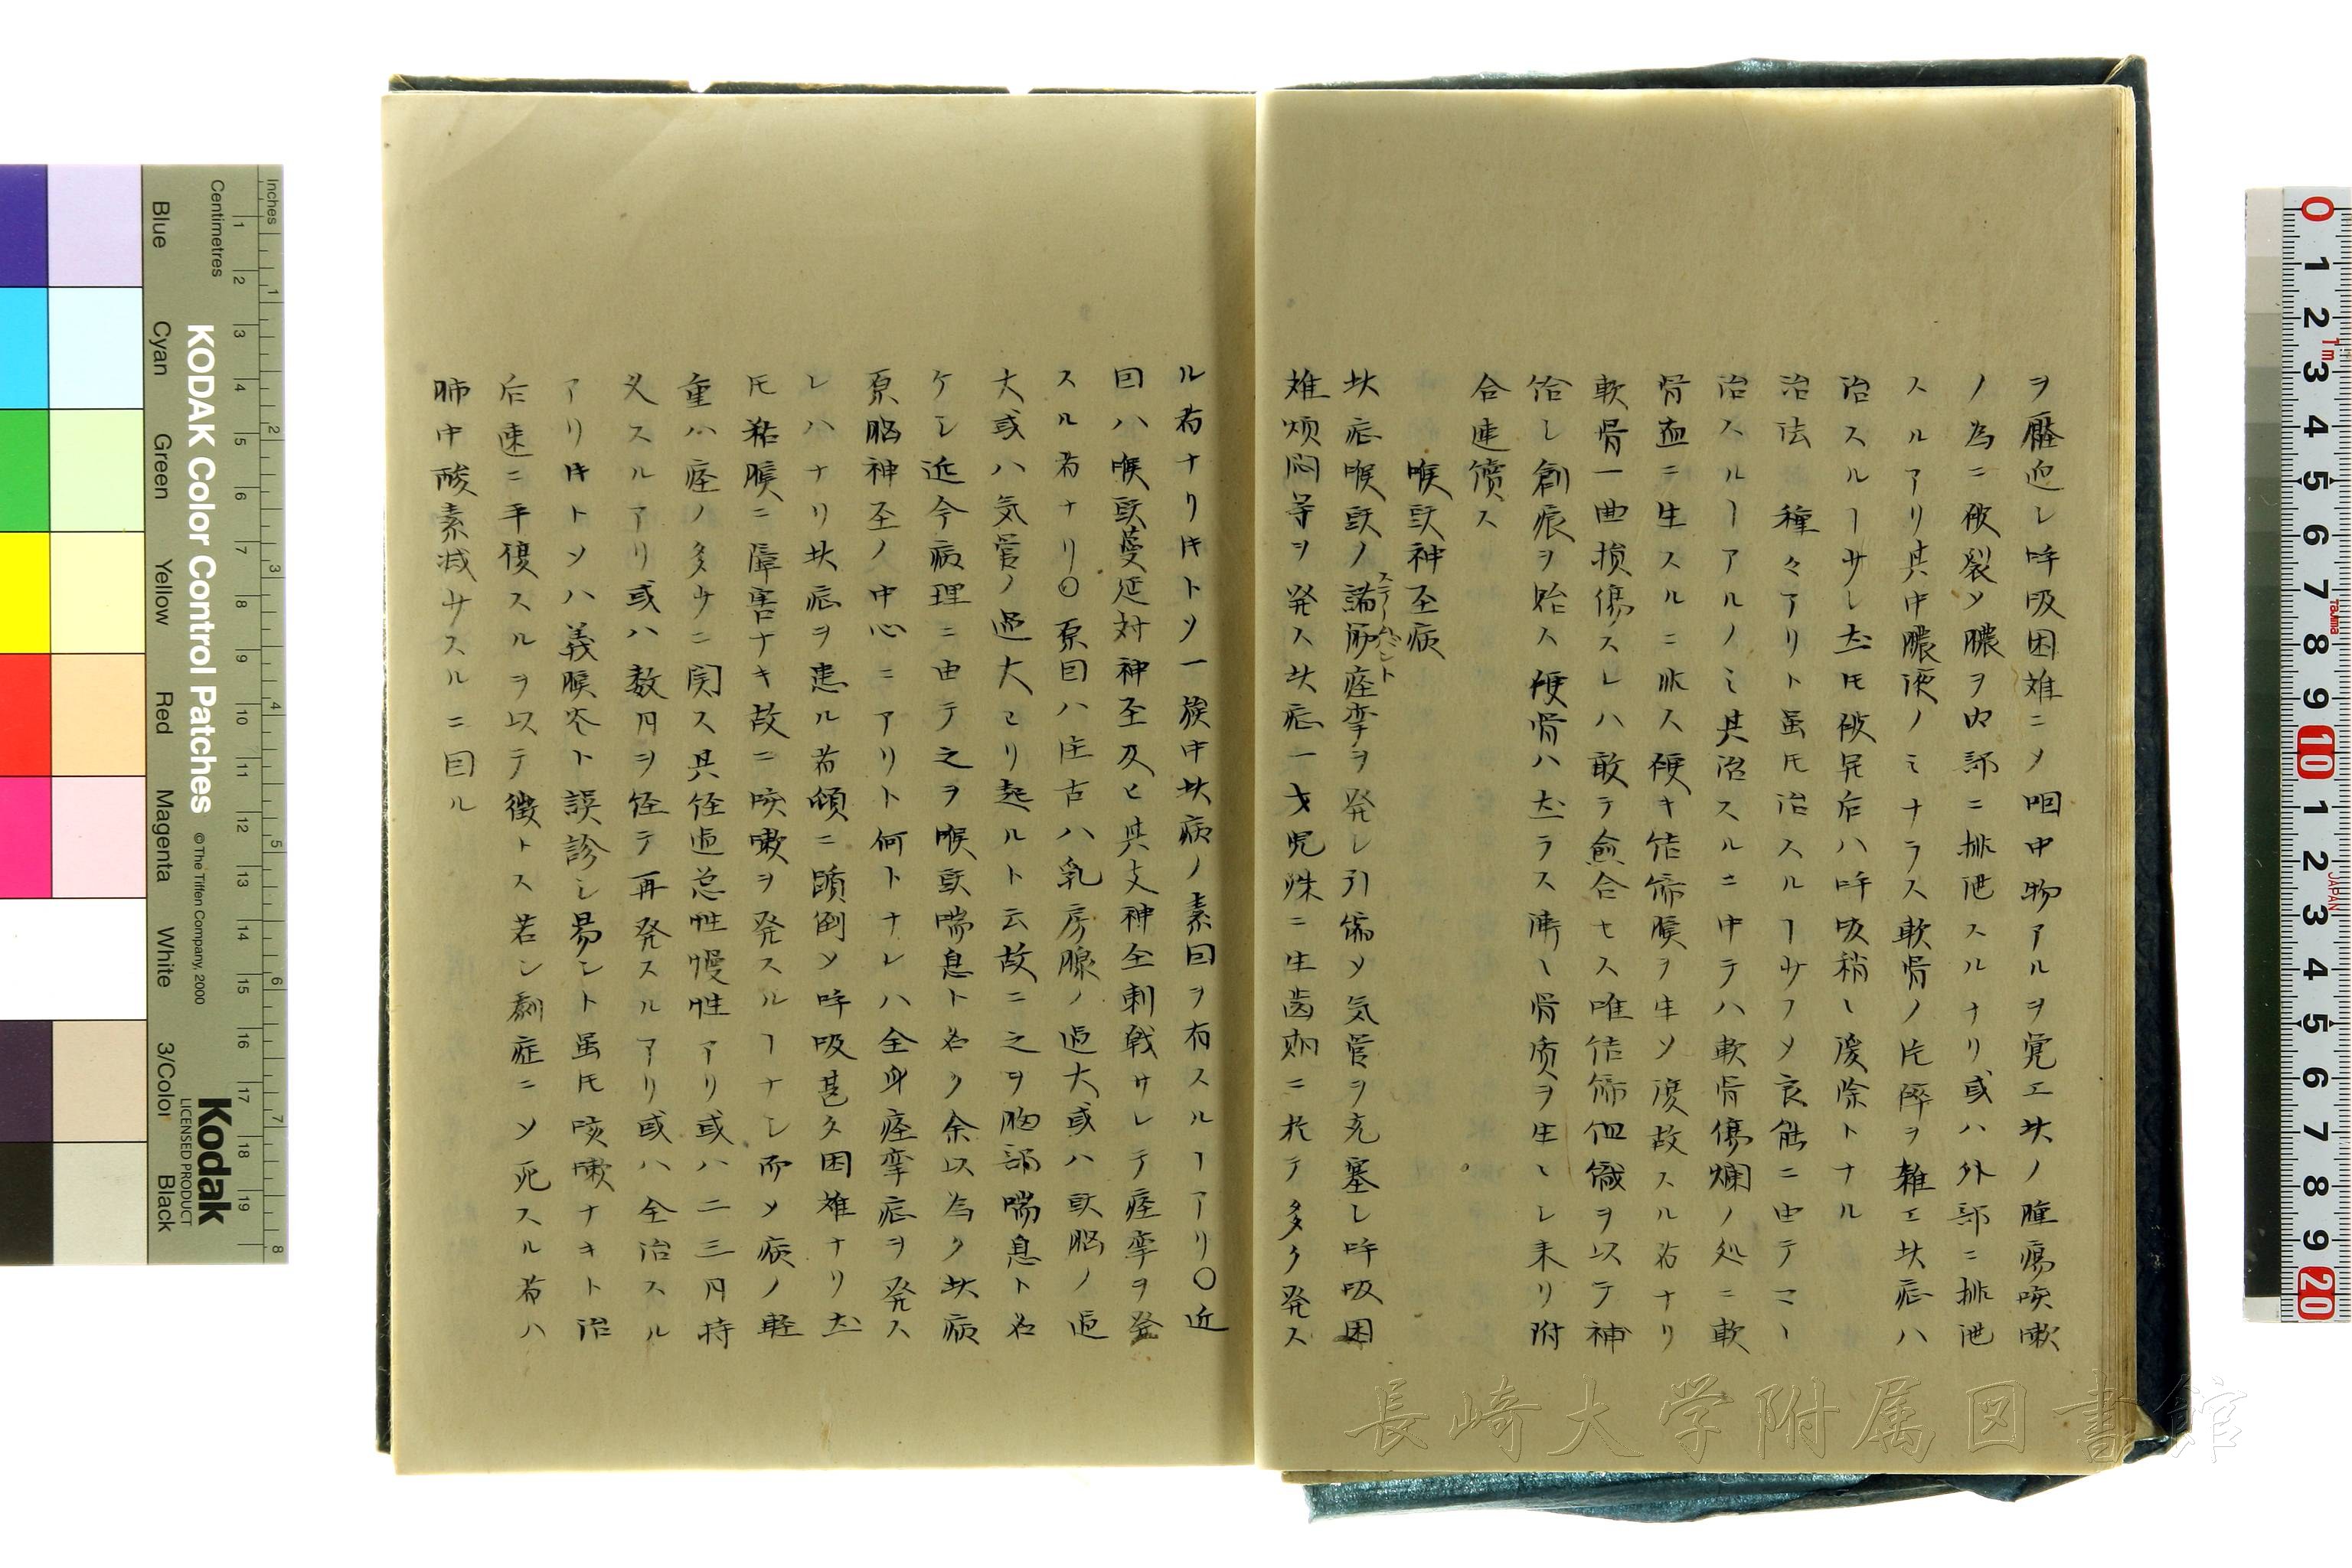 ヲ壓迫シ呼吸困难ニメ咽中物アルヲ覚エ此ノ腫瘍咳嗽
ノ為ニ破裂メ膿ヲ内部ニ排泄スルナリ或ハ外部ニ排泄
スルアリ其中膿液ノミナラス軟骨ノ片碎ヲ雑エ此症ハ
治スルヿ少シ𪜈破開后ハ呼吸稍々緩除トナル
治法 種々アリト虽𪜈治スルヿ少フメ良能ニ由テマヽ
治スルヿアルノミ其治スルニ中テハ軟骨傷爛ノ処ニ軟
骨直ニ生スルニ非ス硬キ結締膜ヲ生ソ復故スル者ナリ
軟骨一曲損傷スレハ敢テ愈合セス唯結締組織ヲ以テ補
治シ創痕ヲ貽ス硬骨ハ然ラス漸々骨質ヲ生シ来リ附
合連續ス
喉頭神圣病
此症喉頭ノ諸筋痙挛ヲ発シ引縮メ気管ヲ充塞シ呼吸困
难煩悶等ヲ発ス此症一才児殊ニ生歯期ニ於テ多ク発ス
ル者ナリ𪜈トソ一族中此病ノ素因ヲ有スルヿアリ〇近
因ハ喉頭蔓延対神圣及ヒ其支神圣刺戟サレテ痙挛ヲ発
スル者ナリ〇原因ハ往古ハ乳房腺ノ過大或ハ頭脳ノ過
大或ハ気管ノ過大ヨリ起ルト云故ニ之ヲ胸部喘息ト名
ケシ近今病理ニ由テ之ヲ喉頭喘息ト名ク余以為ク此病
原脳神圣ノ中心ニアリト何トナレハ全身痙挛症ヲ発ス
レハナリ此症ヲ患ル者頓ニ顛倒ソ呼吸甚タ困难ナリ然
𪜈粘膜ニ障害ナキ故ニ咳嗽ヲ発スルヿナシ而メ病ノ軽
重ハ痙ノ多少ニ関ス其経過急性慢性アリ或ハ二三月持
久スルアリ或ハ数月ヲ経テ再発スルアリ或ハ全治スル
アリ𪜈トソハ義膜炎ト誤診シ易シト虽𪜈咳嗽ナキト治
后速ニ平復スルヲ以テ徴トス若シ劇症ニソ死スル者ハ
肺中酸素減少スルニ因ル
スチームバント
長崎大学附属図書館
KODAK Color Control Patches
© The Tiffen Company, 2000
Kodak
LICENSED PRODUCT
Inches
Centimetres
Blue
Cyan
Green
Yellow
Red
Magenta
White
3/Color
Black
JAPAN